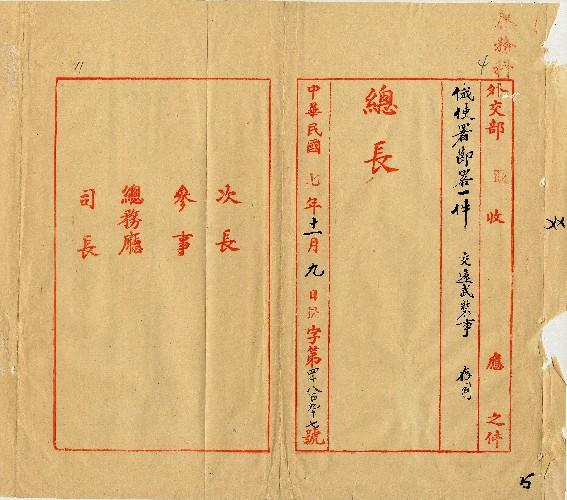 務科
外交部 收 應 之件
俄使署節畧一件 交還武裝事
4
總長
中華民國七年十一月九日 字第 八百 七號
次長
參事
總務廳
司長